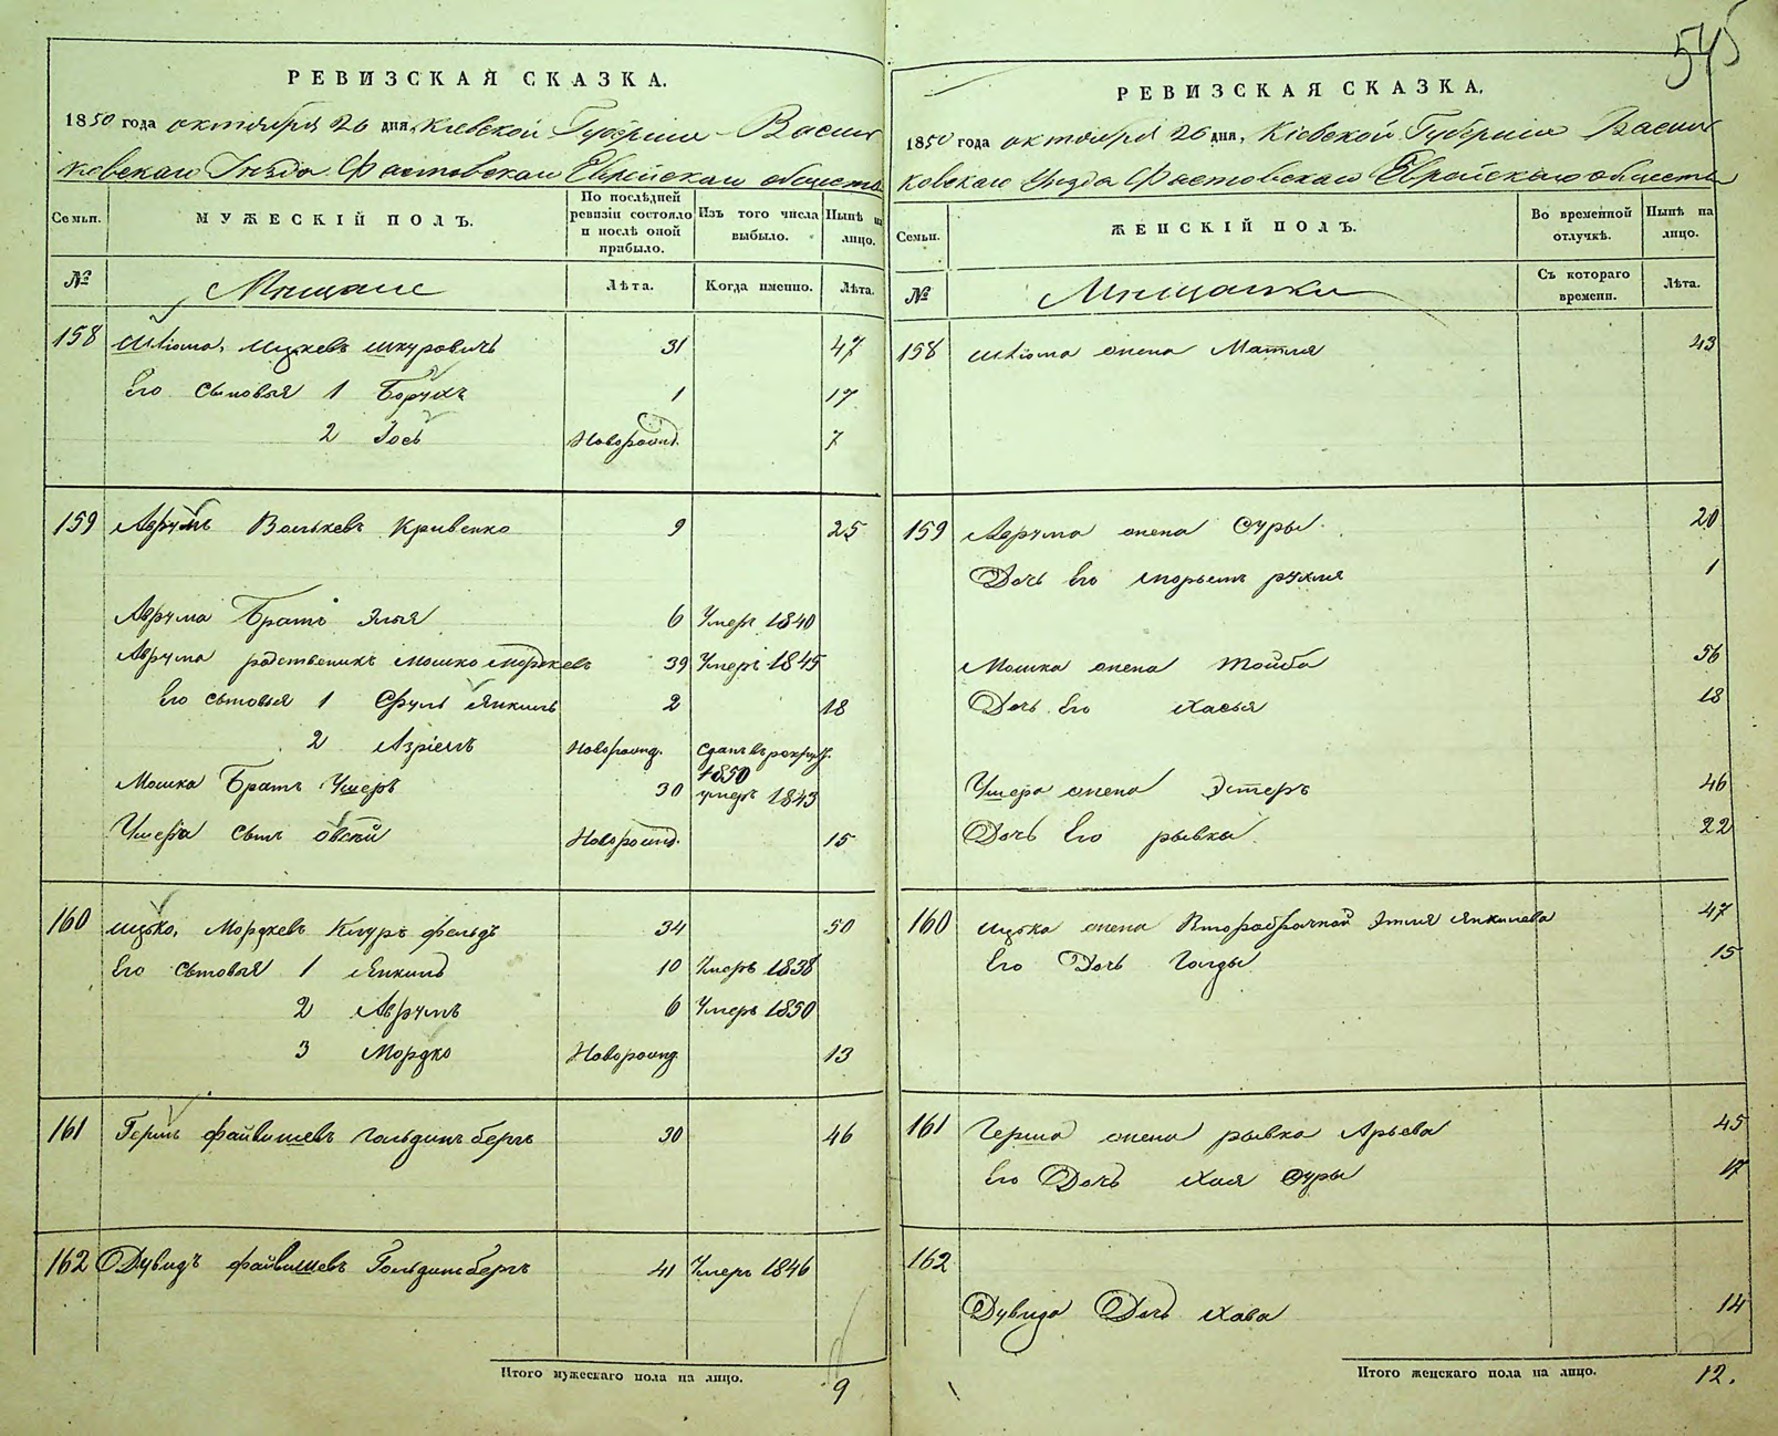 545
РЕВИЗСКАЯ СКАЗКА.
1850 года октября 26 дня, Киевской Губерніи Василь
ковскаго Уезда Фастовскаго Еврейскаго общества
Семьи. МУЖЕСКІЙ ПОЛЪ. По послѣдней ревизіи состояло и послѣ оной прибыло. Изъ того числа выбыло. Нынѣ на лицо.
№ Мещане Лѣта. Когда именно. Лѣта.
158 Ицкевъ Шкуровичъ 31 47
Его сыновья 1 Борухъ 1 17
2 Іось Новорожд. 7
159 Аврумъ Волькевъ Кривенко 9 25
Аврума Братъ Элья 6 Умеръ 1840
Аврума родственикъ Мошко Мордкевъ 39 Умеръ 1845
Его сыновья 1 Сруль Янкель 2 18
2 Азріель Новорожд. Сданъ въ рекруты 1850
Мошка Братъ Ушеръ 30 умеръ 1843
Ушера сынъ Овсѣй Новорожд. 15
160 Ицко Мордкевъ 34 50
Его сыновья 1 Янкель 10 Умеръ 1838
2 Аврумъ 6 Умеръ 1850
3 Мордко Новорожд. 13
161 Гершъ Файвишевъ Гольдинъбергъ 30 46
162 Дувидъ Файвишевъ Гольдинбергъ 41 Умеръ 1846
Итого мужескаго пола на лицо. 9
РЕВИЗСКАЯ СКАЗКА.
1850 года октября 26 дня, Кіевской Губерніи Василь
ковскаго Уезда Фастовскаго Еврейскаго общества
Семьи. ЖЕНСКІЙ ПОЛЪ. Во временной отлучкѣ. Нынѣ на лицо.
№ Мещанки Съ котораго времени. Лѣта.
158 жена Матля 43
159 Аврума жена Суры 20
Дочь Его Рухля 1
Мошка жена Тойба 56
Дочь Его Хасья 18
Ушера жена Эстеръ 46
Дочь Его рывка 22
160 Ицка жена Второбрачной Этля Янкилева 47
Его Дочь Голды 15
161 Герша жена рывка Арьева 45
Его Дочь Хая Суры 17
162
Дувида Дочь Хава 14
Итого женскаго пола на лицо. 12.